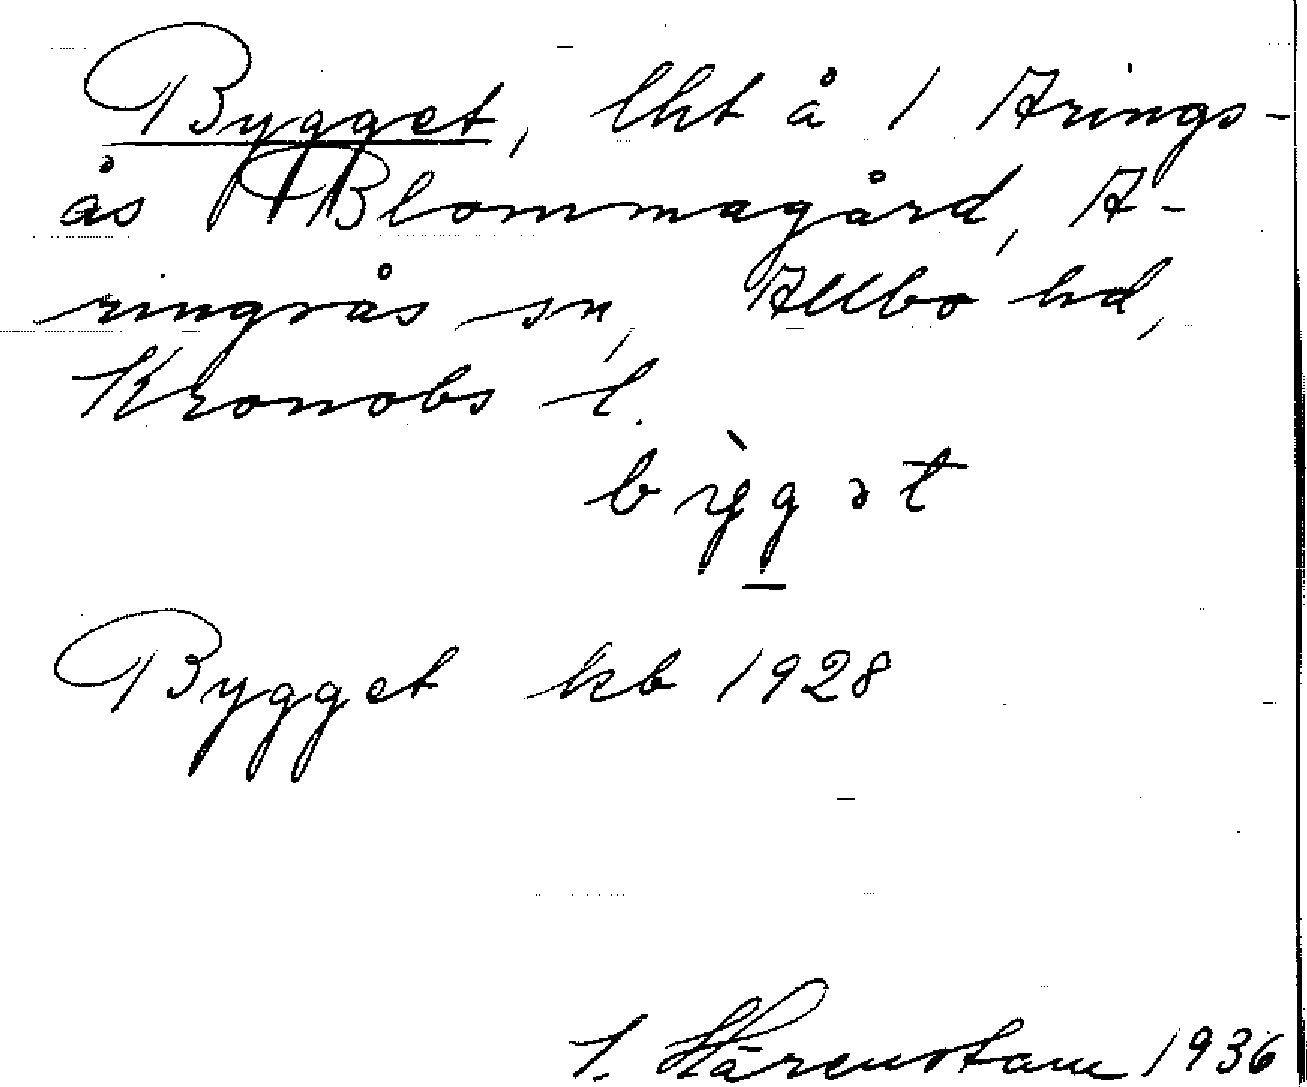 Bygget, lht å 1 Arings-
ås Blommagård, A-
ringsås sn, Allbo hd,
Kronobs l.
bỳgət
Bygget kb 1928
Härenstam 1936